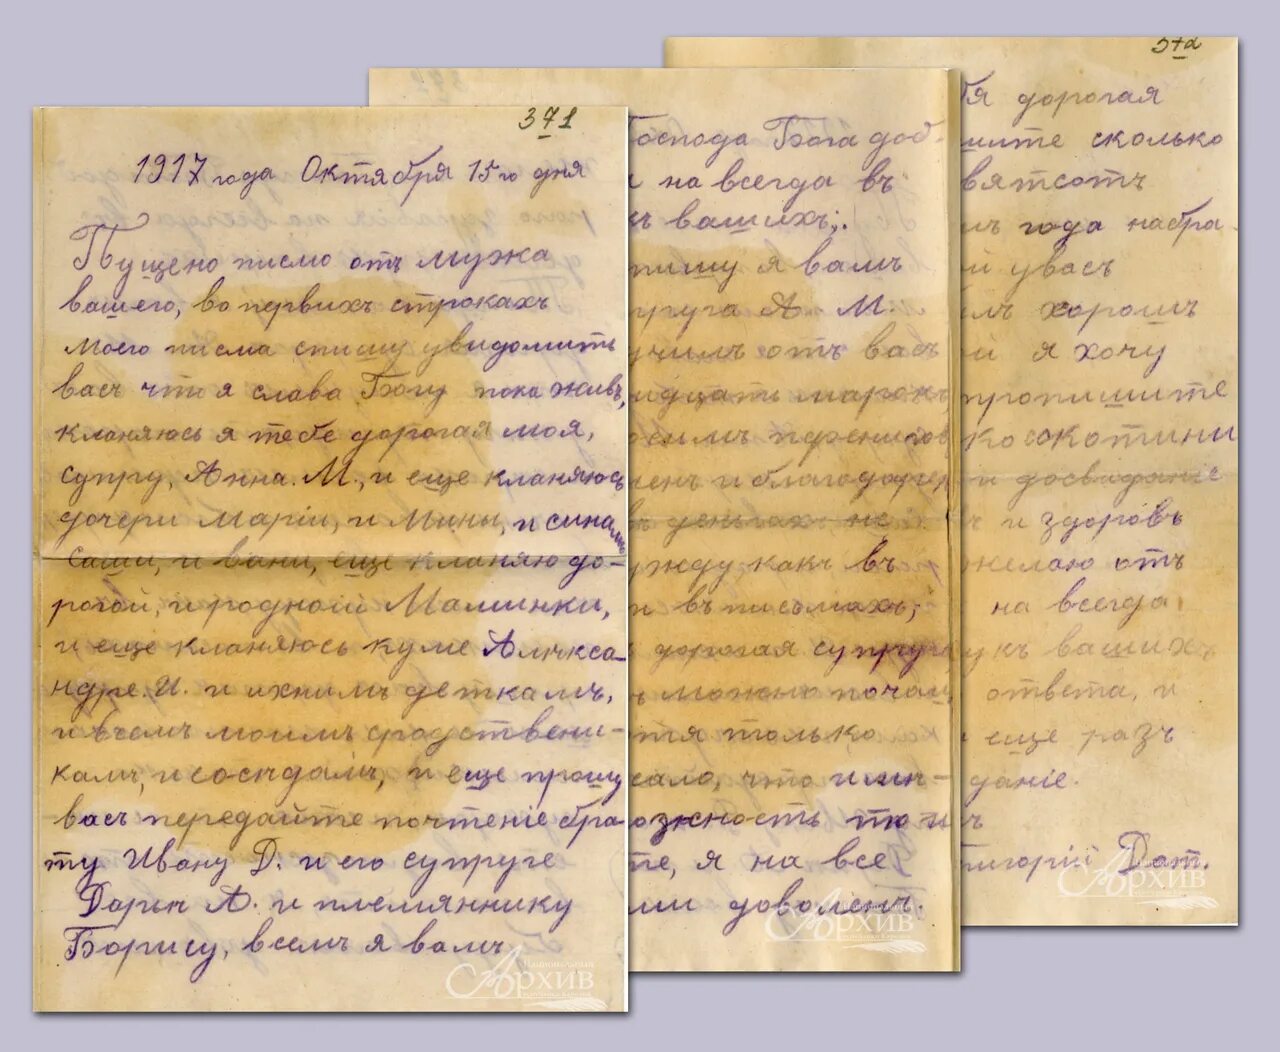 371
1917 года Октября 15го дня
Пущено писмо отъ мужа
вашего, во первихъ строкахъ
моего писма спишу увидомить
васъ что я слава Богу пока живъ,
кланяюсь я тебе дорогая моя,
супру, Анна. М., и еще кланяюсь
дочери Маріи, и Мины, и синамъ
Саши, и Вани, еще кланяю до-
рогой, и родной Маминки,
и еще кланяюсь куме Аликса-
ндре, И. и ихнимъ деткамъ,
и всемъ моимъ сродствени-
камъ, и соседамъ, и еще прошу
васъ передайте почтеніе бра-
ту Ивану Д. и его супруге
Дарьи А. и племяннику
Борису, всемъ я вамъ
Национальный
Архив
Господа Бога доб-
и на всегда въ
вашихъ;.
пишу я вамъ
пруга А. М.
училъ отъ васъ
идцать марокъ,
пфенигов
ленъ и благодарен
въ деньгах не
ужду какъ въ
и въ писмахъ;
дорогая супруга
ъ можно почащ
тя только
сало, что и ли-
озжность то и
те, я на все
ми доволенъ.
Архив
37а
бя дорогая
шите сколько
вятсотъ
мъ года набра-
й увасъ
лъ хорошъ
й я хочу
пропишите
ко скотини
и досвиданіе
ъ и здоровъ
желаю отъ
на всегда
укъ вашихъ
ответа, и
еще разъ
даніе.
ъ
игорій Дат.
Архив